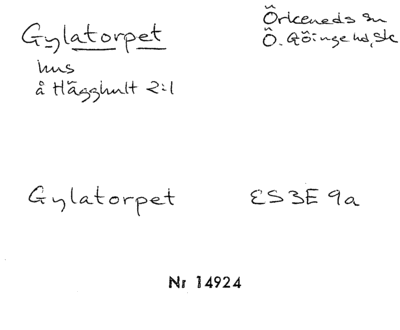 Gylatorpet
Örkeneds sn
Ö. Göinge hd, Sk
hus
å Hägghult 2:1
Gylatorpet
ES 3E 9a
Nr 14924